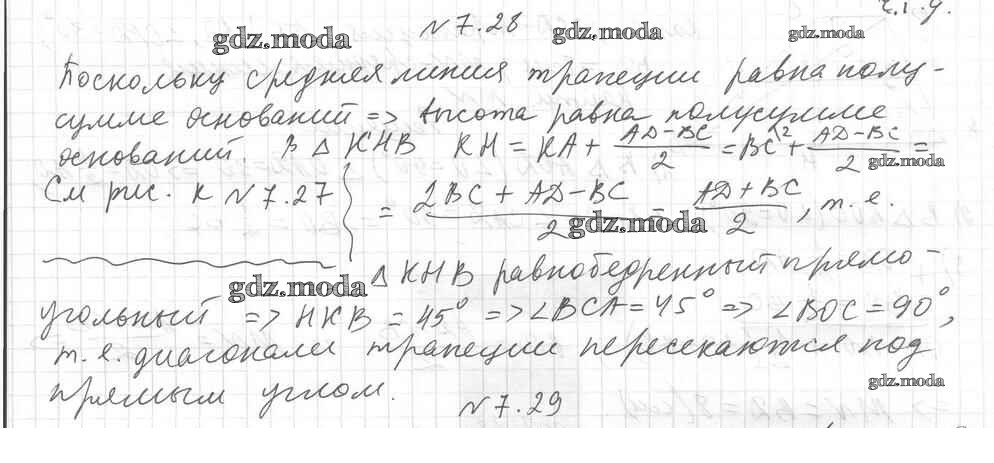 ч.т.д.
N 7.28
gdz.moda gdz.moda gdz.moda
Поскольку средняя линия трапеции равна полу-
сумме оснований => высота равна полусумме
оснований В △ KHB KH = KA + (AD-BC)/2 = BC + (AD-BC)/2 =
gdz.moda
См рис. к N 7.27
= (2BC + AD-BC)/2 = (AD+BC)/2, т.е.
gdz.moda
gdz.moda
△ KHB равнобедренный прямо-
угольный => HKB = 45° => ∠BCA = 45° => ∠BOC = 90°,
т.е. диагонали трапеции пересекаются под
прямым углом.
gdz.moda
N 7.29